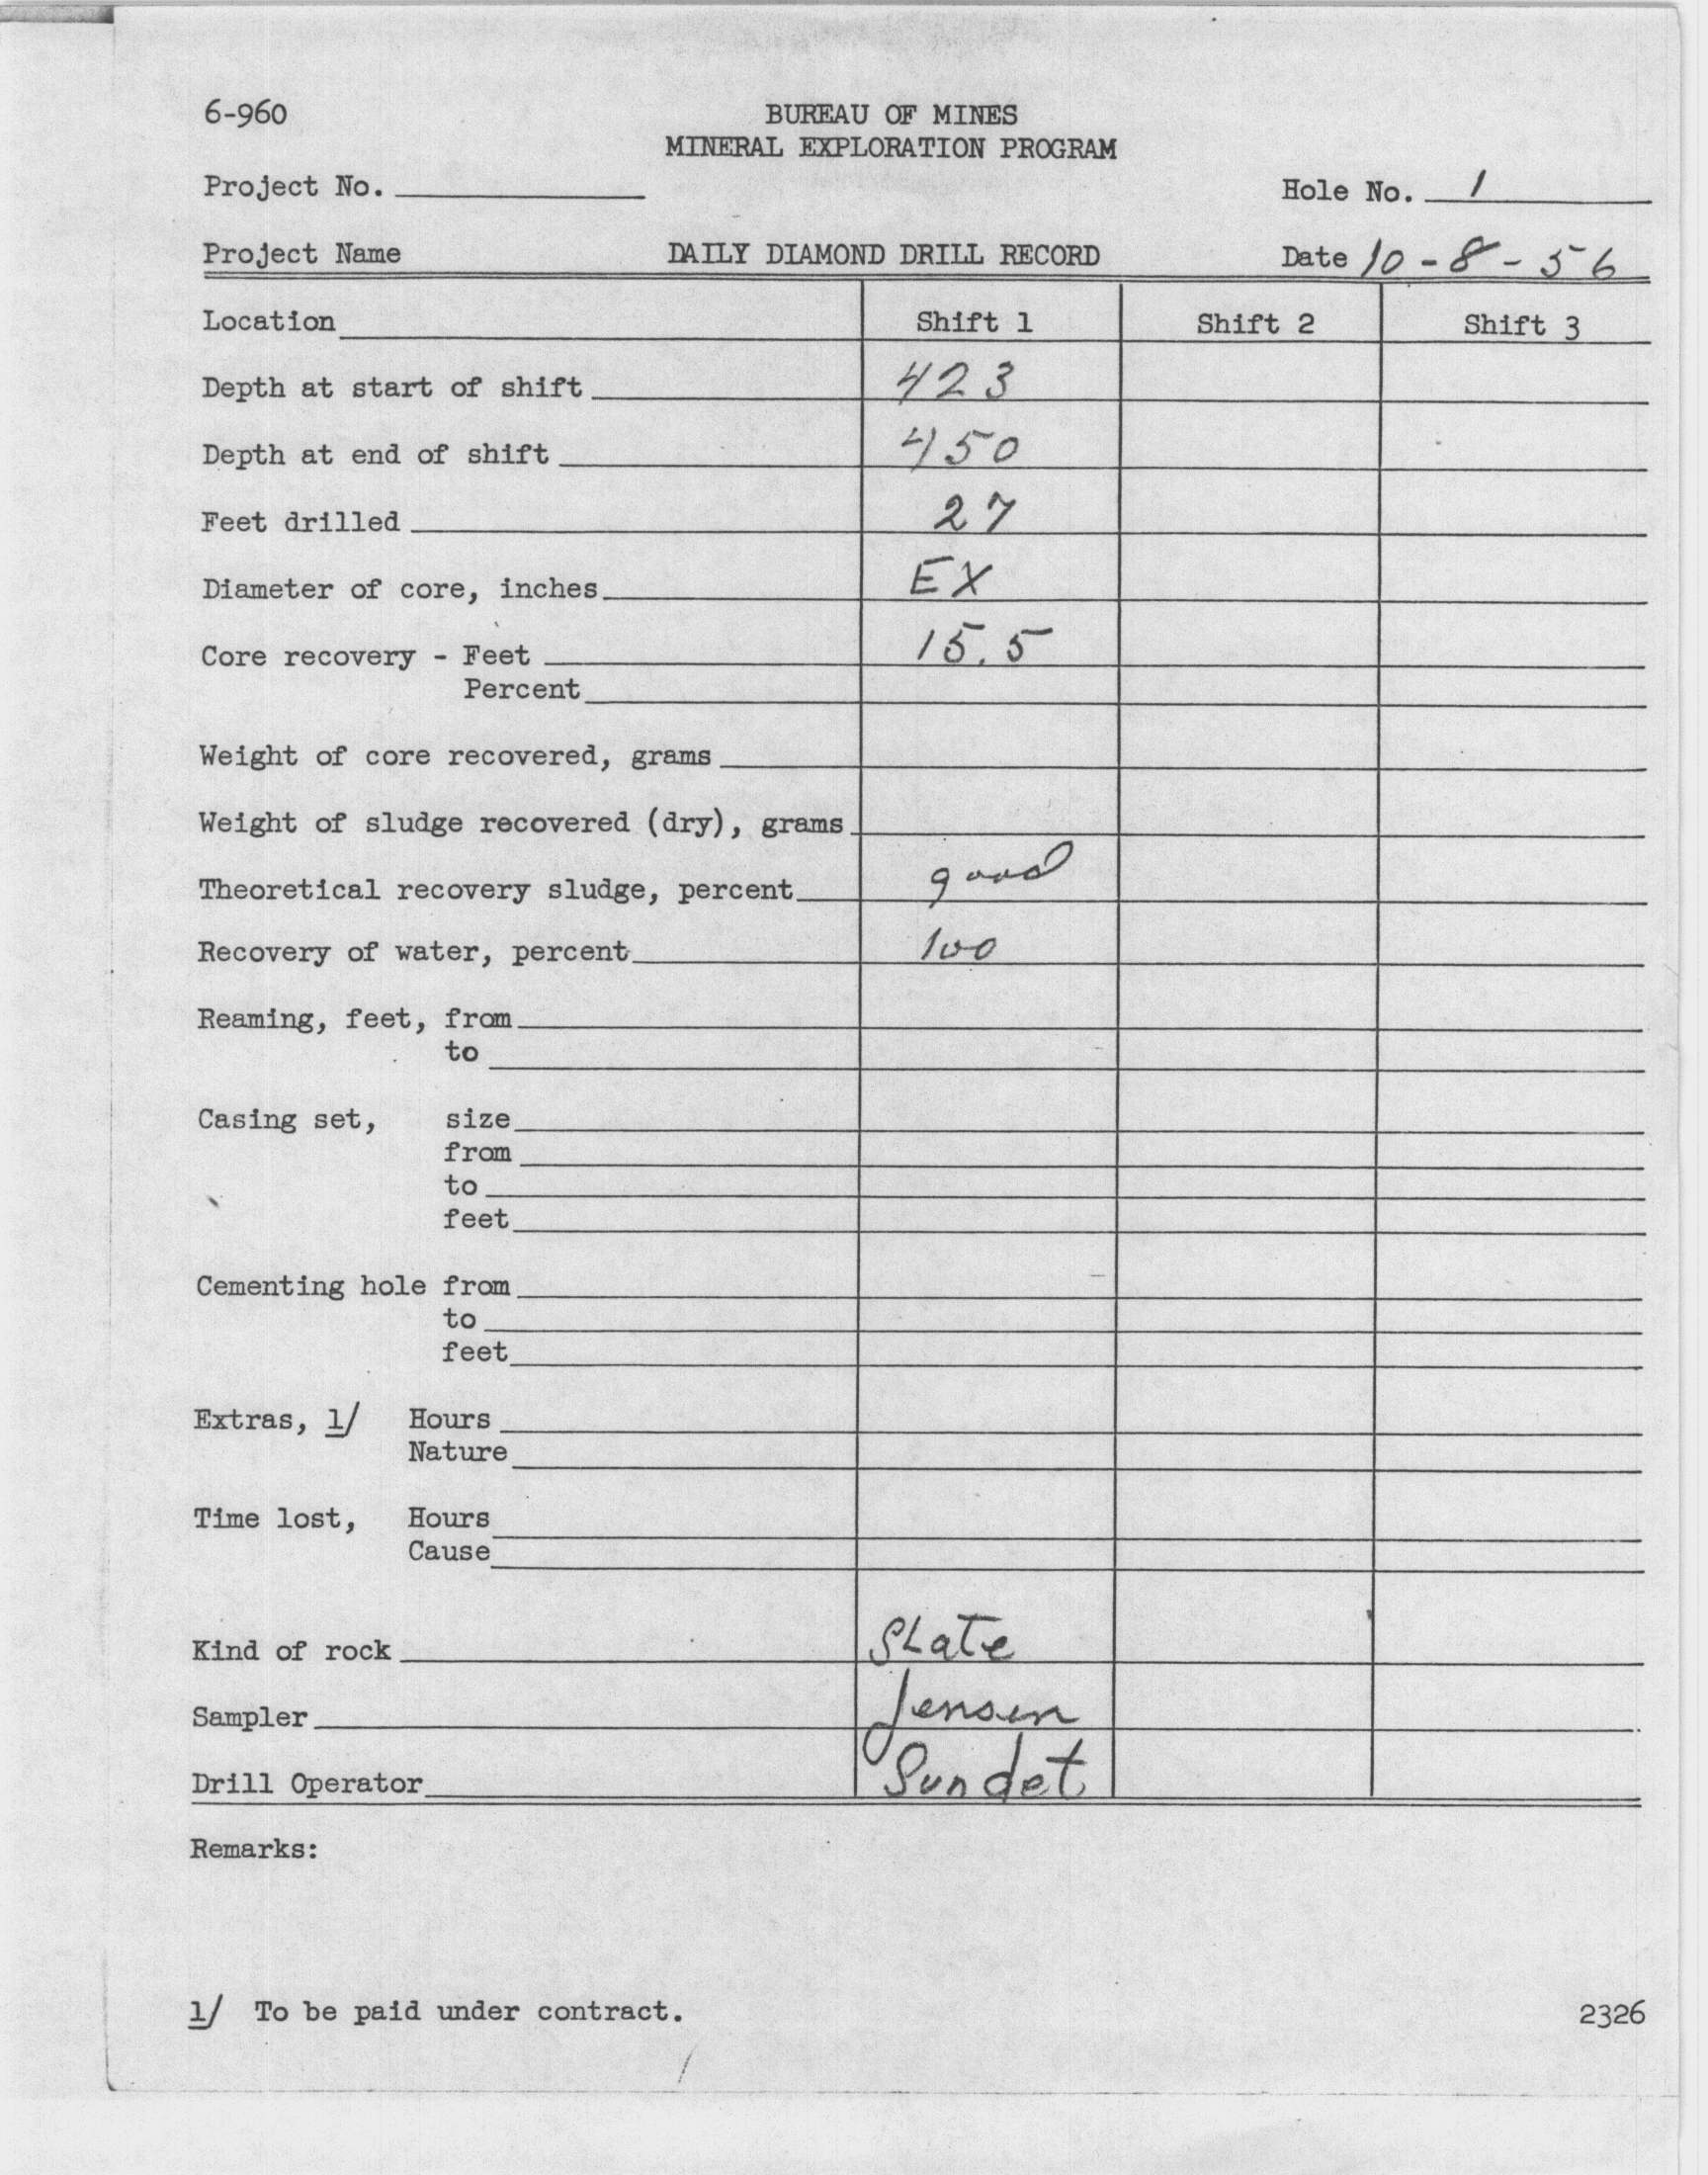 6-960 BUREAU OF MINES
MINERAL EXPLORATION PROGRAM
Project No. Hole No. 1
Project Name DAILY DIAMOND DRILL RECORD Date 10-8-56
Location Shift 1 Shift 2 Shift 3
Depth at start of shift 423
Depth at end of shift 450
Feet drilled 27
Diameter of core, inches EX
Core recovery - Feet 15.5
Percent
Weight of core recovered, grams
Weight of sludge recovered (dry), grams
Theoretical recovery sludge, percent good
Recovery of water, percent 100
Reaming, feet, from
to
Casing set, size
from
to
feet
Cementing hole from
to
feet
Extras, 1/ Hours
Nature
Time lost, Hours
Cause
Kind of rock SLate
Sampler Jensen
Drill Operator Sundet
Remarks:
1/ To be paid under contract. 2326